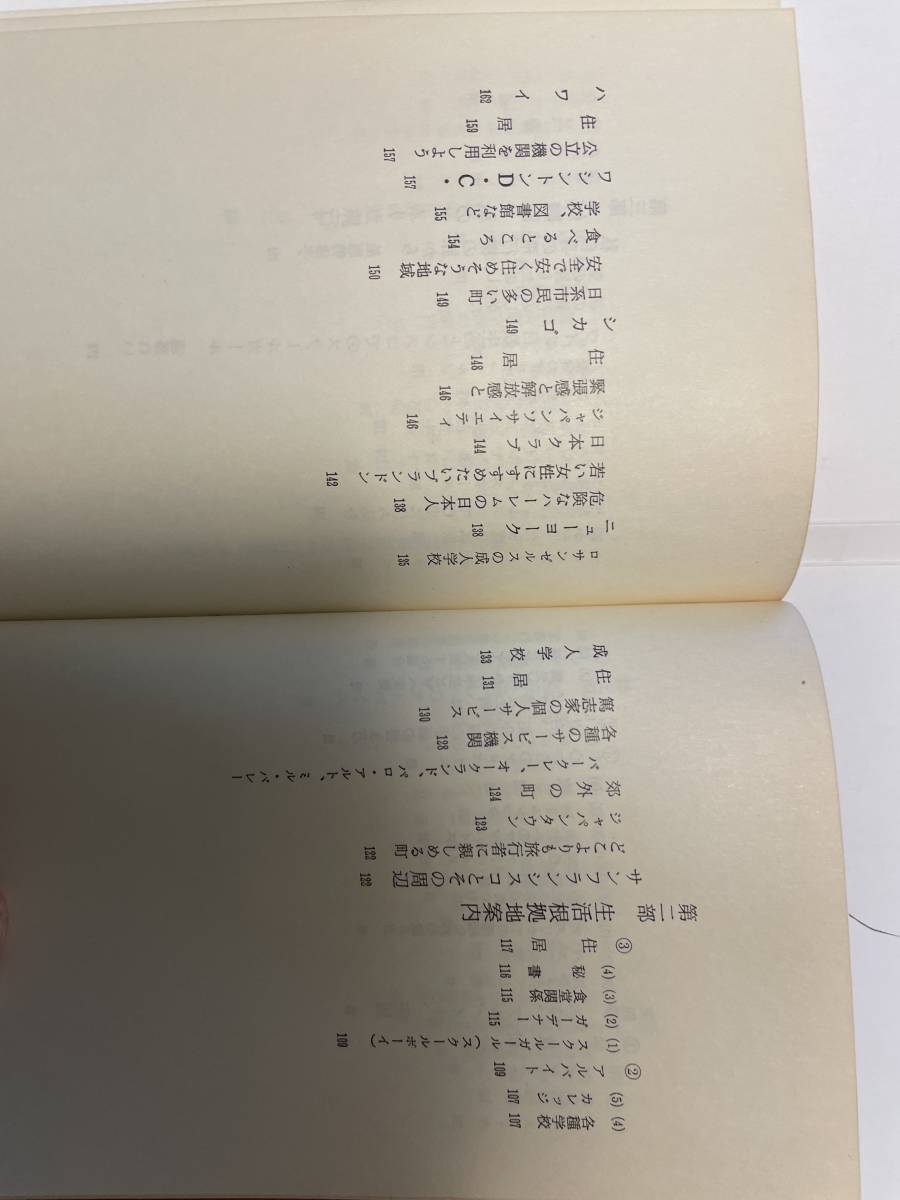 (4) 各種学校 107
(5) カレッジ 107
② アルバイト 109
(1) スクールガール(スクールボーイ) 109
(2) ガーデナー 115
(3) 食堂関係 115
(4) 秘書 116
③ 住居 117
第二部 生活根拠地案内
サンフランシスコとその周辺 122
どこよりも旅行者に親しめる町 122
ジャパンタウン 123
郊外の町 124
バークレー、オークランド、パロ・アルト、ミル・バレー
各種のサービス機関 128
篤志家の個人サービス 130
住居 131
成人学校 133
ロサンゼルスの成人学校 135
ニューヨーク 138
危険なハーレムの日本人 138
若い女性にすすめたいブランドン 142
日本クラブ 144
ジャパンソサイエティ 146
緊張感と解放感と 146
住居 148
シカゴ 149
日系市民の多い町 149
安全で安く住めそうな地域 150
食べるところ 154
学校、図書館など 155
ワシントンD・C・ 157
公立の機関を利用しよう 157
住居 159
ハワイ 162